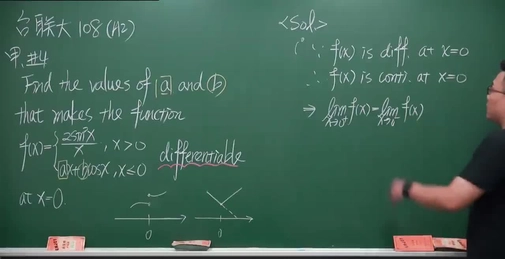 台联大 108 (A2)
甲.#4
Find the values of a and b
that makes the function
f(x)={ 2sin²x/x , x>0
ax+bcosx , x≤0
differentiable
at x=0.
0
0
<Sol>
1° ∵ f(x) is diff. at x=0
∴ f(x) is conti. at x=0
⇒ lim x→0⁺ f(x)=lim x→0⁻ f(x)